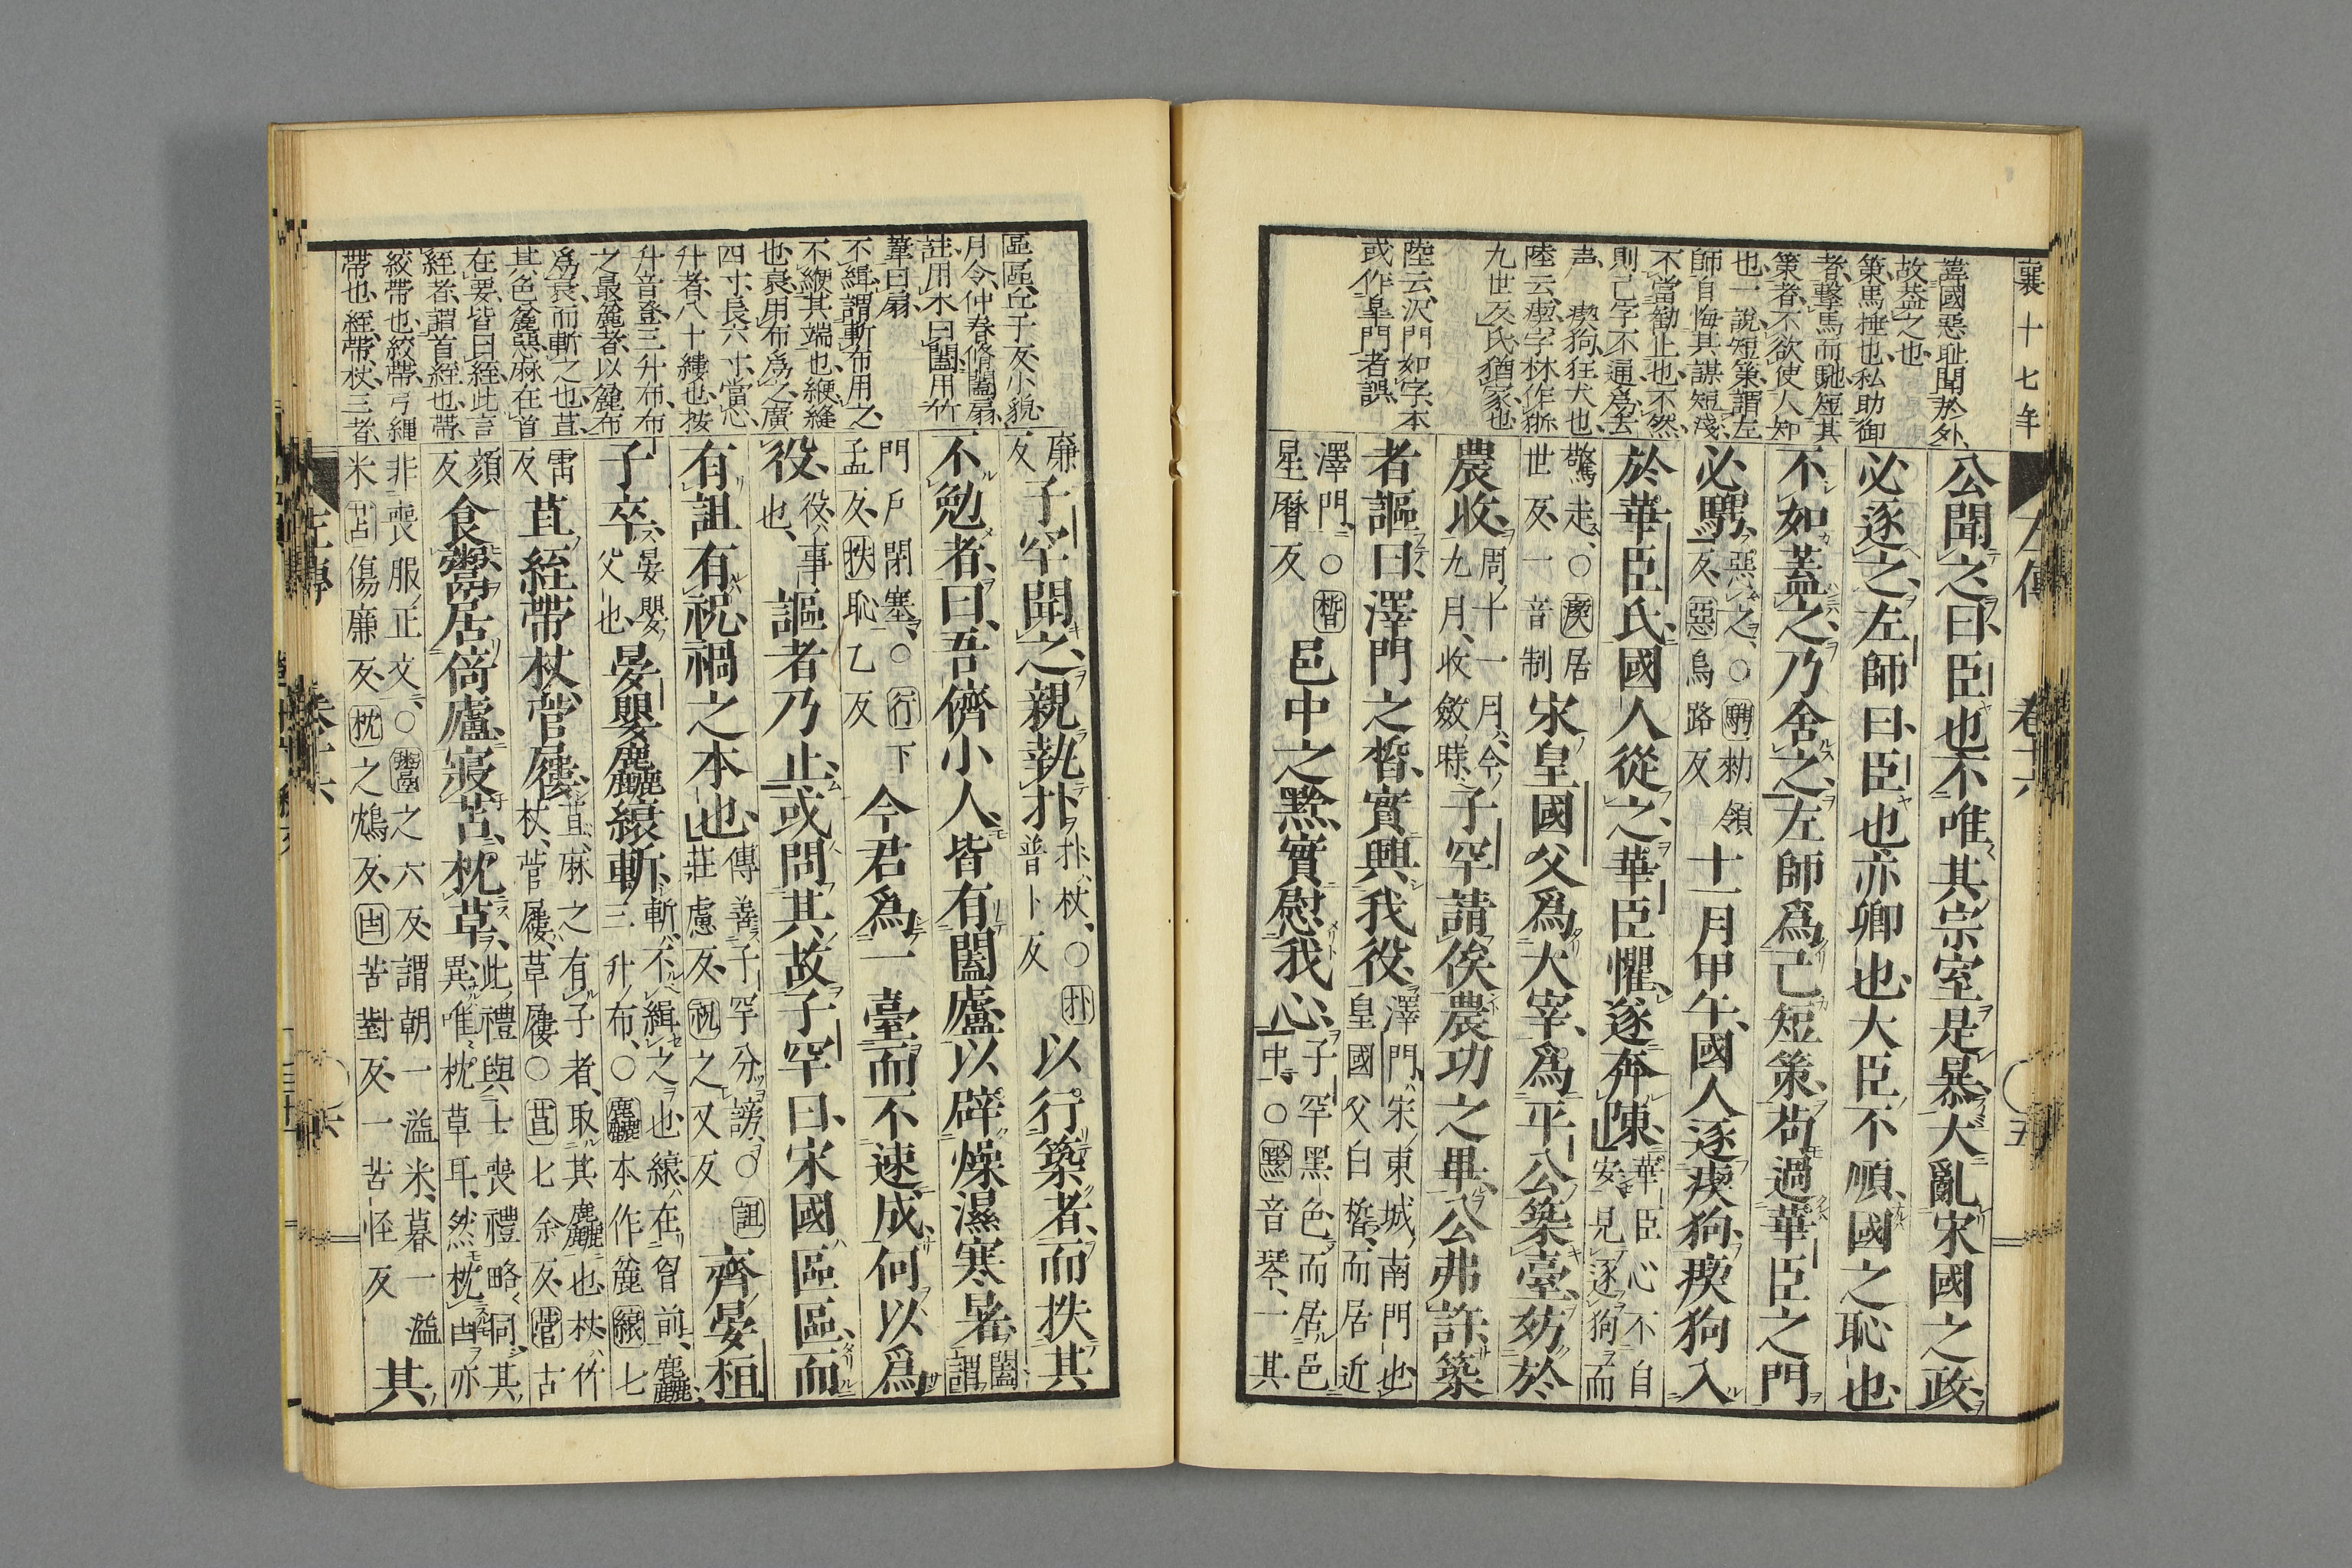 襄十七年
左傳 卷十六 五
蓋國惡恥聞於外、
故蓋之也
策馬捶也、私助御
者、擊馬而馳、短其
策者、不欲使人知
也、一說、短策、謂左
師自悔其謀短淺、
不當勸止也、不然、
則己字不通、爲去
声 瘈狗狂犬也、
陸云、瘈字林作狾
九世反、氏、猶家也
陸云、沢門如字、本
或作皇門者誤
公聞之曰、臣也不唯其宗室是暴、大亂宋國之政、
必逐之、左師曰、臣也亦卿也、大臣不順、國之恥也、
不如蓋之、乃舍之、左師爲己短策、苟過華臣之門
必騁、惡之、○騁勑領反、惡烏路反十一月甲午、國人逐瘈狗、瘈狗入
於華臣氏、國人從之、華臣懼、遂奔陳、華臣心不自安、見逐狗而
驚走、○瘈居世反、一音制宋皇國父爲大宰、爲平公築臺、妨於
農收、周十一月、今九月、收斂時、子罕請俟農功之畢、公弗許、築
者謳曰、澤門之晳、實興我役、澤門、宋東城南門也、皇國父白晳、而居近
澤門、○晳星曆反邑中之黔、實慰我心、子罕黑色、而居邑中、○黔音琴、一其
區區、丘于反、小貌
月令、仲春脩闔扇、
註、用木曰闔、用竹
葦曰扇、
不緝、謂斬布用之、
不緶其端也、緶、縫
也、衰、用布爲之、廣
四寸、長六寸、當心、
升者、八十縷也、按
升音登、三升布、布
之最麁者、以麁布
爲衰、而斬之也、苴、
其色麁惡、麻在首
在要、皆曰絰、此言
絰者、謂首絰也、帶、
絞帶也、絞帶弓繩
帶也、絰、帶、杖、三者、
廉反子罕聞之、親執扑、扑、杖、○扑普卜反以行築者、而抶其
不勉者、曰、吾儕小人、皆有闔廬以辟燥濕寒暑、闔、謂
門戶閉塞、○行下孟反、抶恥乙反今君爲一臺而不速成、何以爲
役、役、事也、謳者乃止、或問其故、子罕曰、宋國區區、而
有詛有祝、禍之本也、傳善子罕分謗、○詛莊慮反、祝之又反齊晏桓
子卒、晏嬰父也晏嬰麤縗斬、斬、不緝之也、縗在胷前、麤、三升布、○麤本作麁縗七
雷反苴絰帶、杖、菅屨、苴、麻之有子者、取其麤也、杖、竹杖、菅屨、草屨○苴七余反、菅古
顔反食鬻、居倚廬、寢苫、枕草、此禮與士喪禮略同、其異唯枕草耳、然枕凷亦
非喪服正文、○鬻之六反、謂朝一溢米、暮一溢米苫傷廉反、枕之鴆反、凷苦對反、一苦怪反其
左傳 卷十六